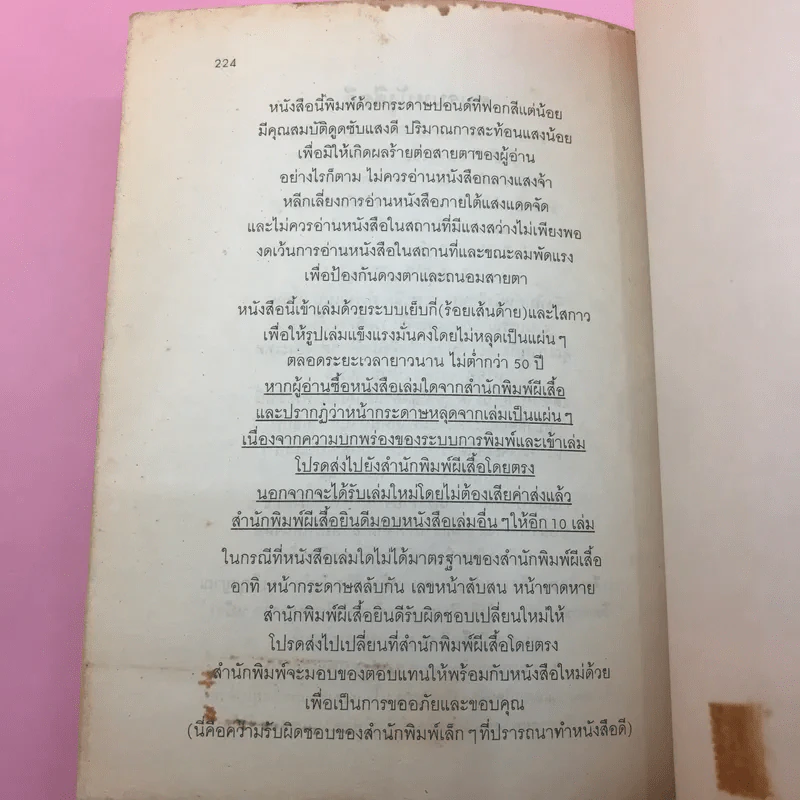 224
หนังสือนี้พิมพ์ด้วยกระดาษปอนด์ที่ฟอกสีแต่น้อย
มีคุณสมบัติดูดซับแสงดี ปริมาณการสะท้อนแสงน้อย
เพื่อมิให้เกิดผลร้ายต่อสายตาของผู้อ่าน
อย่างไรก็ตาม ไม่ควรอ่านหนังสือกลางแสงจ้า
หลีกเลี่ยงการอ่านหนังสือภายใต้แสงแดดจัด
และไม่ควรอ่านหนังสือในสถานที่มีแสงสว่างไม่เพียงพอ
งดเว้นการอ่านหนังสือในสถานที่และขณะลมพัดแรง
เพื่อป้องกันดวงตาและถนอมสายตา
หนังสือนี้เข้าเล่มด้วยระบบเย็บกี่(ร้อยเส้นด้าย)และไสกาว
เพื่อให้รูปเล่มแข็งแรงมั่นคงโดยไม่หลุดเป็นแผ่นๆ
ตลอดระยะเวลายาวนาน ไม่ต่ำกว่า 50 ปี
หากผู้อ่านซื้อหนังสือเล่มใดจากสำนักพิมพ์ผีเสื้อ
และปรากฏว่าหน้ากระดาษหลุดจากเล่มเป็นแผ่นๆ
เนื่องจากความบกพร่องของระบบการพิมพ์และเข้าเล่ม
โปรดส่งไปยังสำนักพิมพ์ผีเสื้อโดยตรง
นอกจากจะได้รับเล่มใหม่โดยไม่ต้องเสียค่าส่งแล้ว
สำนักพิมพ์ผีเสื้อยินดีมอบหนังสือเล่มอื่นๆให้อีก 10 เล่ม
ในกรณีที่หนังสือเล่มใดไม่ได้มาตรฐานของสำนักพิมพ์ผีเสื้อ
อาทิ หน้ากระดาษสลับกัน เลขหน้าสับสน หน้าขาดหาย
สำนักพิมพ์ผีเสื้อยินดีรับผิดชอบเปลี่ยนใหม่ให้
โปรดส่งไปเปลี่ยนที่สำนักพิมพ์ผีเสื้อโดยตรง
สำนักพิมพ์จะมอบของตอบแทนให้พร้อมกับหนังสือใหม่ด้วย
เพื่อเป็นการขออภัยและขอบคุณ
(นี่คือความรับผิดชอบของสำนักพิมพ์เล็กๆที่ปรารถนาทำหนังสือดี)